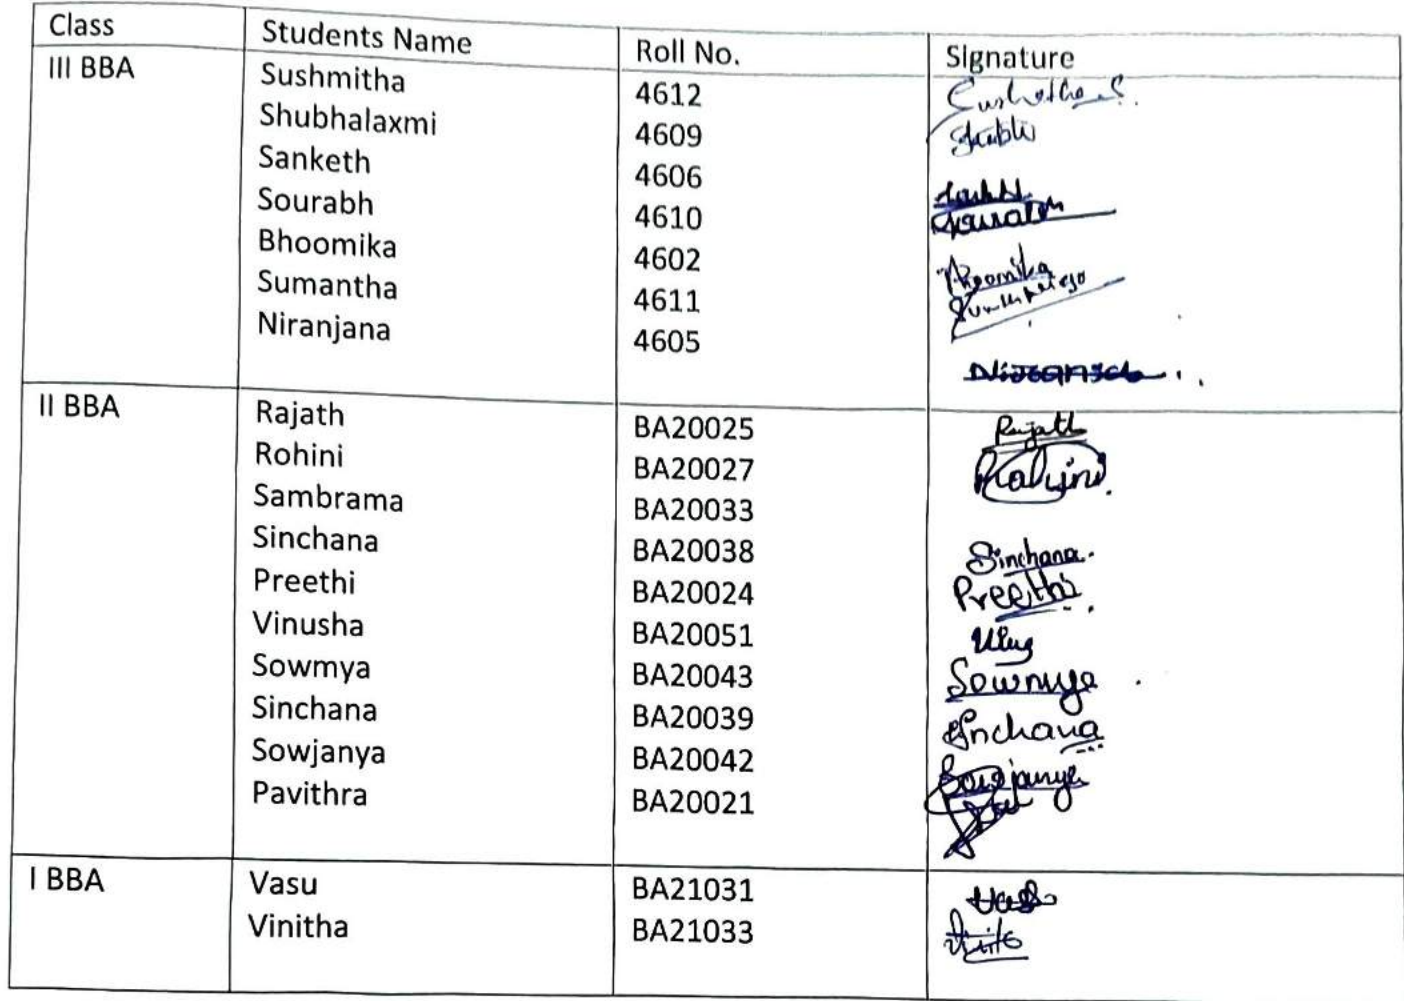 Class Students Name Roll No. Signature
III BBA Sushmitha 4612
Shubhalaxmi 4609 Shubh
Sanketh 4606
Sourabh 4610 Sourabh
Bhoomika 4602 Bhoomika
Sumantha 4611
Niranjana 4605
II BBA Rajath BA20025 Rajath
Rohini BA20027
Sambrama BA20033
Sinchana BA20038 Sinchana.
Preethi BA20024 Preethi
Vinusha BA20051
Sowmya BA20043 Sowmya
Sinchana BA20039 Sinchana
Sowjanya BA20042 Sowjanya
Pavithra BA20021
I BBA Vasu BA21031 Vasu
Vinitha BA21033